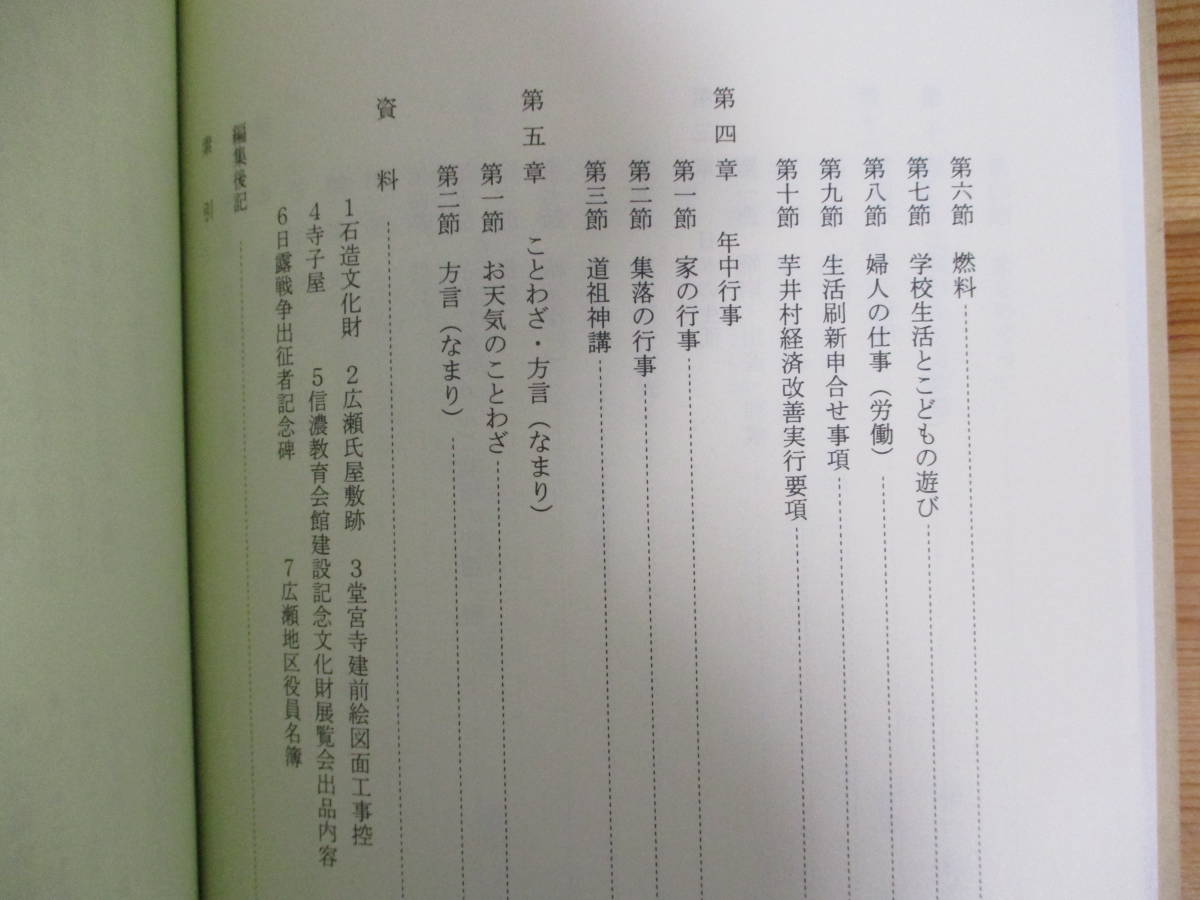 第六節　燃料
第七節　学校生活とこどもの遊び
第八節　婦人の仕事（労働）
第九節　生活刷新申合せ事項
第十節　芋井村経済改善実行要項
第四章　年中行事
第一節　家の行事
第二節　集落の行事
第三節　道祖神講
第五章　ことわざ・方言（なまり）
第一節　お天気のことわざ
第二節　方言（なまり）
資料
1石造文化財　2広瀬氏屋敷跡　3堂宮寺建前絵図面工事控
4寺子屋　5信濃教育会館建設記念文化財展覧会出品内容
6日露戦争出征者記念碑　7広瀬地区役員名簿
編集後記
索引